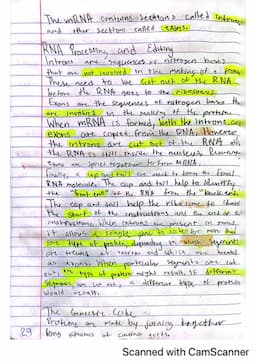 The mRNA contains sections called Introns
and other sections called exons.
RNA Processing and Editing
Introns are sequences of nitrogen bases
that are not involved in the making of a
These need to be cut out of the RNA
before the RNA goes to the ribosomes.
Exons are the sequences of nitrogen bases that
are involved in the making of the protein.
When mRNA is formed, both the introns and
exons are copied from the DNA. However
the introns are cut out of the RNA
the RNA is still inside the nucleus.
exons are together to form mRNA.
Finally, a cap and tail are used to form the final
RNA molecule. The cap and tail help to identify
the "front end" of the RNA from the "back end"
The cap and tail help the ribosome to
the start of the instructions and the end of
instructions. When introns are present in
it allows a single gene to code for more than
one type of protein, depending on which segments
are treated as introns and which are treated
as exons. When particular segments are cut
out, one type of protein might result. If different
segments are cut out, a different type of protein
would result.
The Genetic Code
Proteins are made by joining together
long chains of amino acids.
29
Scanned with CamScanner